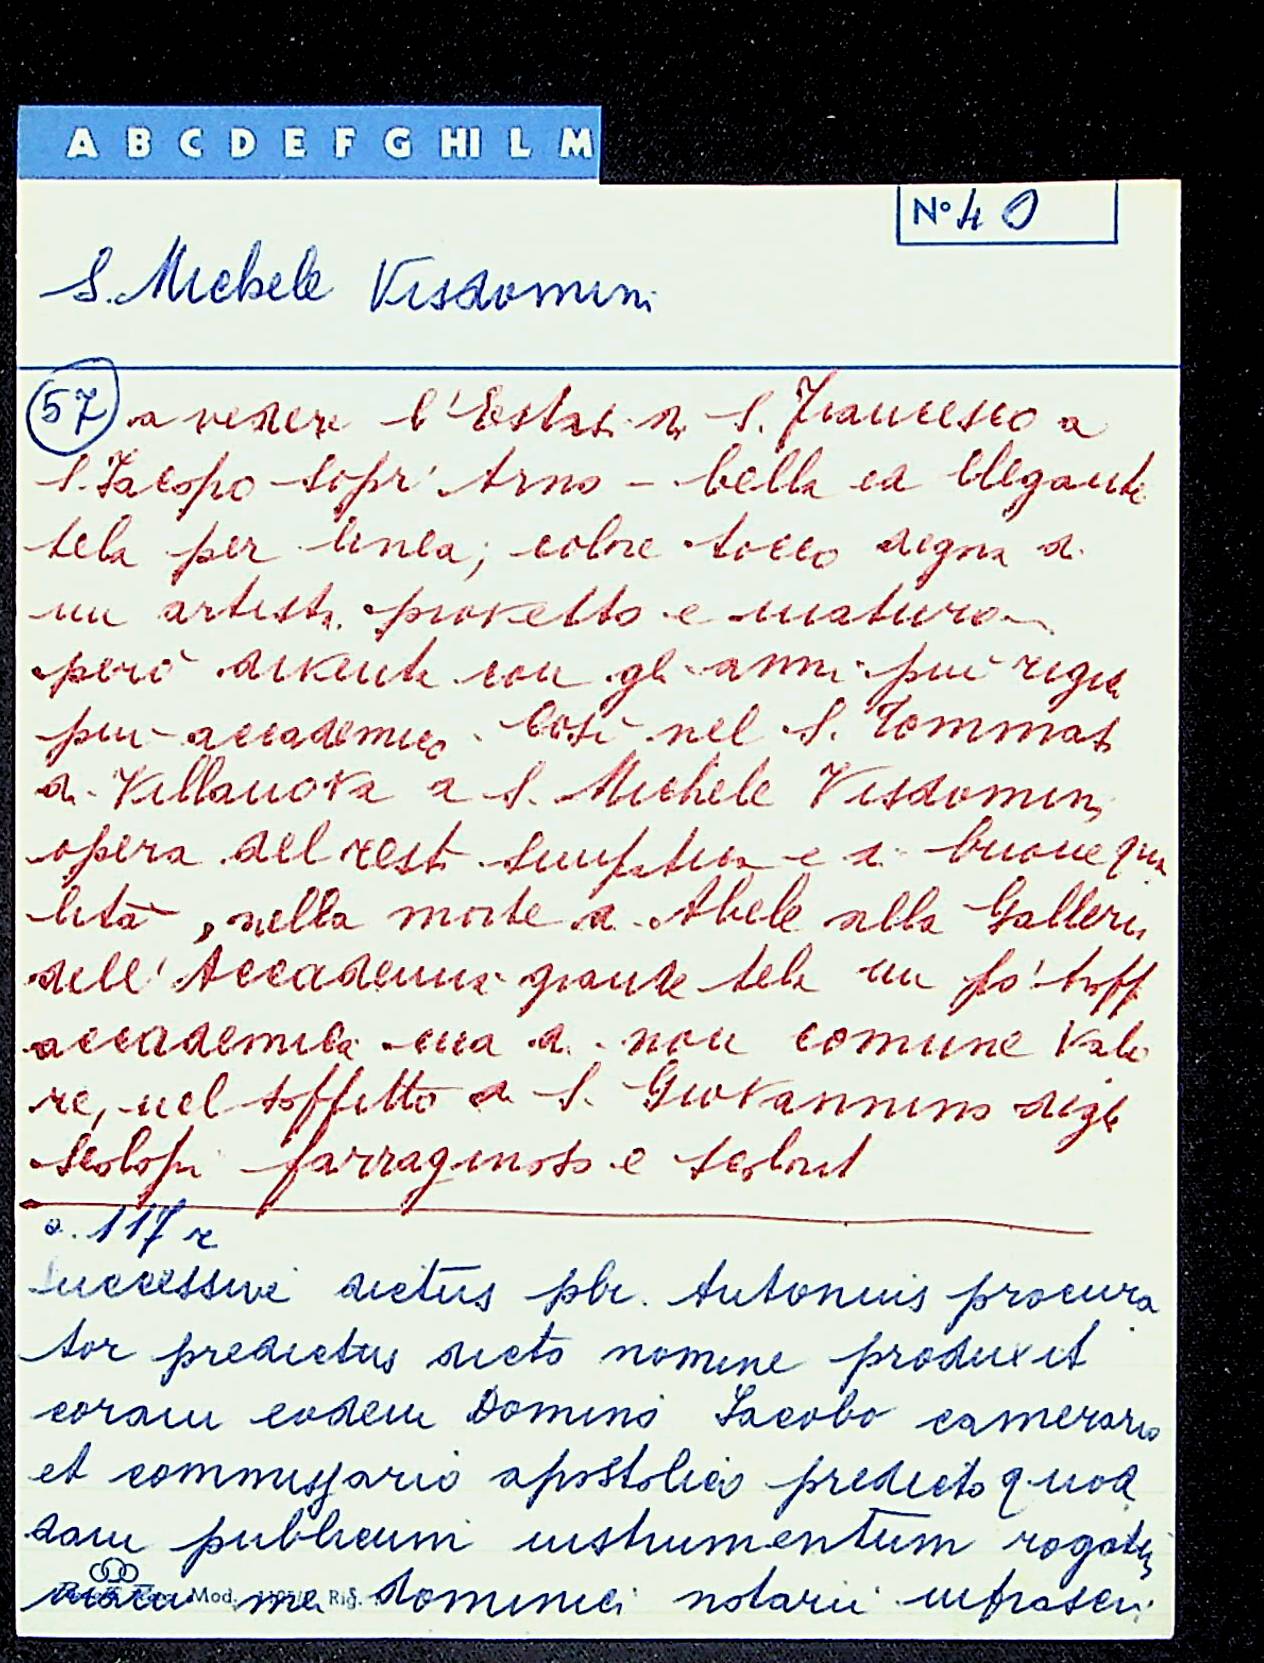 A B C D E F G HI L M
N° 40
S. Michele Visdomini
57 a vedere l'Estasi di S. Francesco a
S. Jacopo Sopr'Arno - bella ed elegante
tela per linea; colore tocco degna di
un artista provetto e maturo
però diventa con gli anni più rigid
più accademico. Così nel S. Tommas
di Villanova a S. Michele Visdomini
opera del resto e di buone qua
lità, nella morte di Abele alla Galleria
dell'Accademia grande tela un po' tropp
accademica ma di non comune valo
re, nel soffitto di S. Giovannino degli
Scolopi farraginoso e
c. 117 r
Successive dictus pbr. Antonius procura
tor predictus dicto nomine produxit
coram eodem Domino Jacobo camerario
et commissario apostolico predicto quod
dam publicum instrumentum rogatum
manu mei Dominici notarii infrascri
Mod. Rig.